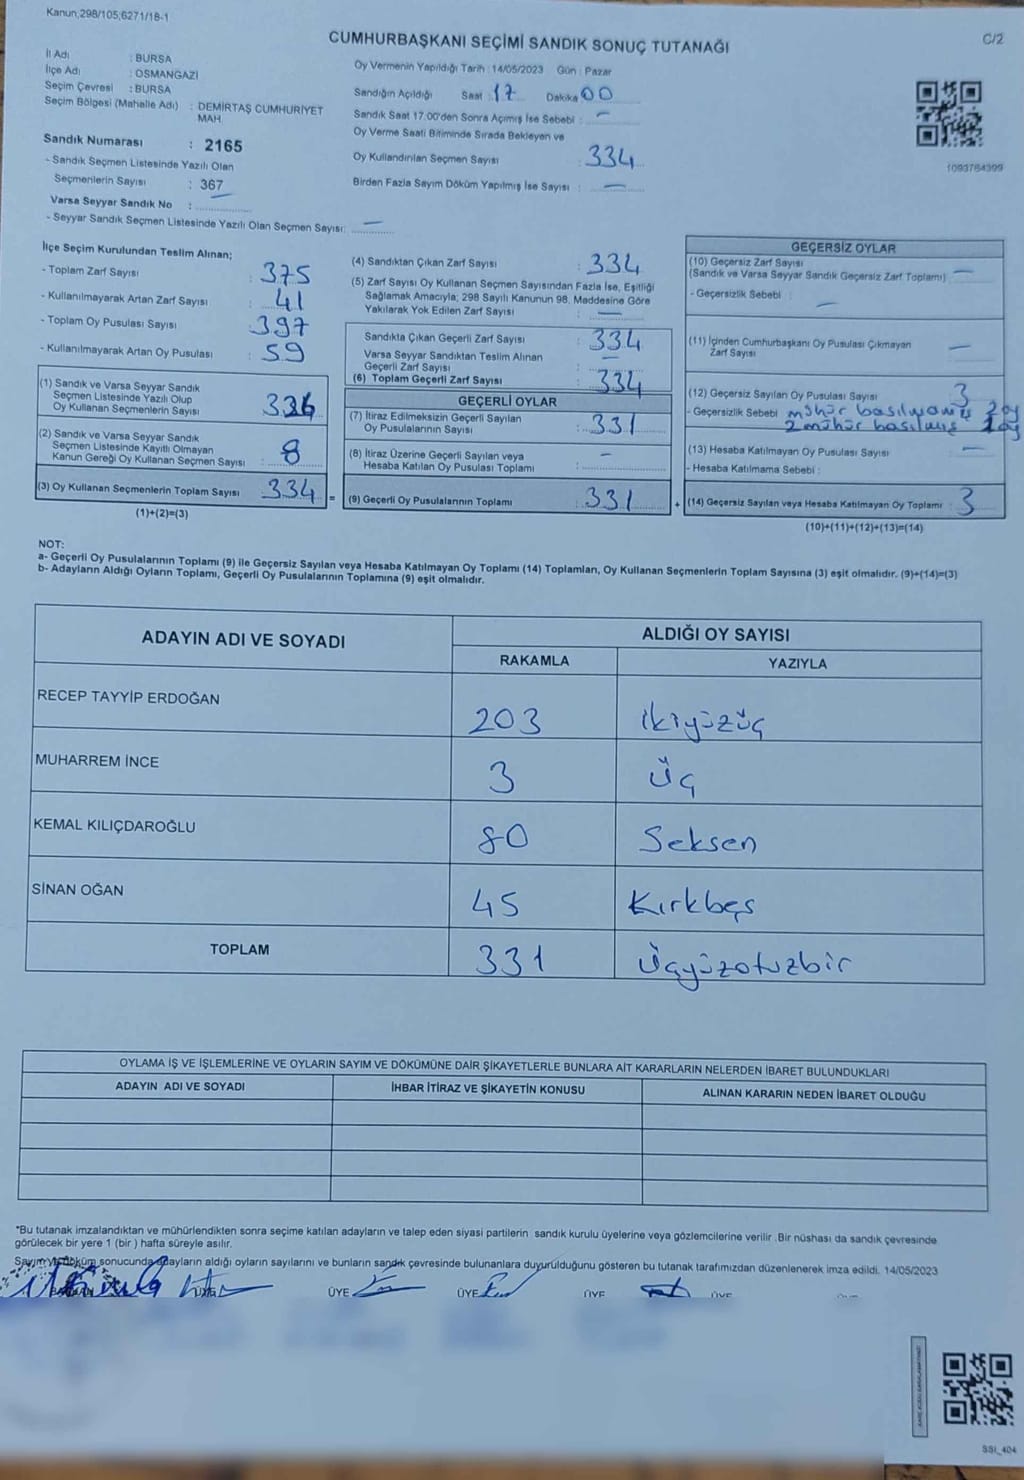 Kanun;298/105;6271/18-1
C/2
CUMHURBAŞKANI SEÇİMİ SANDIK SONUÇ TUTANAĞI
İl Adı : BURSA
İlçe Adı : OSMANGAZİ
Seçim Çevresi : BURSA
Seçim Bölgesi (Mahalle Adı) : DEMİRTAŞ CUMHURİYET MAH.
Sandık Numarası : 2165
- Sandık Seçmen Listesinde Yazılı Olan
Seçmenlerin Sayısı : 367
Varsa Seyyar Sandık No :
- Seyyar Sandık Seçmen Listesinde Yazılı Olan Seçmen Sayısı: —
Oy Vermenin Yapıldığı Tarih : 14/05/2023 Gün : Pazar
Sandığın Açıldığı Saat : 17 Dakika 00
Sandık Saat 17.00'den Sonra Açımış İse Sebebi : —
Oy Verme Saati Bitiminde Sırada Bekleyen ve
Oy Kullandırılan Seçmen Sayısı : 334
Birden Fazla Sayım Döküm Yapılmış İse Sayısı : —
1093764399
İlçe Seçim Kurulundan Teslim Alınan;
- Toplam Zarf Sayısı : 375
- Kullanılmayarak Artan Zarf Sayısı : 41
- Toplam Oy Pusulası Sayısı : 397
- Kullanılmayarak Artan Oy Pusulası : 59
(1) Sandık ve Varsa Seyyar Sandık
Seçmen Listesinde Yazılı Olup
Oy Kullanan Seçmenlerin Sayısı : 326
(2) Sandık ve Varsa Seyyar Sandık
Seçmen Listesinde Kayıtlı Olmayan
Kanun Gereği Oy Kullanan Seçmen Sayısı : 8
(3) Oy Kullanan Seçmenlerin Toplam Sayısı : 334
(1)+(2)=(3)
(4) Sandıktan Çıkan Zarf Sayısı : 334
(5) Zarf Sayısı Oy Kullanan Seçmen Sayısından Fazla İse, Eşitliği
Sağlamak Amacıyla; 298 Sayılı Kanunun 98. Maddesine Göre
Yakılarak Yok Edilen Zarf Sayısı : —
Sandıkta Çıkan Geçerli Zarf Sayısı : 334
Varsa Seyyar Sandıktan Teslim Alınan
Geçerli Zarf Sayısı : —
(6) Toplam Geçerli Zarf Sayısı : 334
GEÇERLİ OYLAR
(7) İtiraz Edilmeksizin Geçerli Sayılan
Oy Pusulalarının Sayısı : 331
(8) İtiraz Üzerine Geçerli Sayılan veya
Hesaba Katılan Oy Pusulası Toplamı : —
= (9) Geçerli Oy Pusulalarının Toplamı : 331
GEÇERSİZ OYLAR
(10) Geçersiz Zarf Sayısı
(Sandık ve Varsa Seyyar Sandık Geçersiz Zarf Toplamı) : —
- Geçersizlik Sebebi : —
(11) İçinden Cumhurbaşkanı Oy Pusulası Çıkmayan
Zarf Sayısı : —
(12) Geçersiz Sayılan Oy Pusulası Sayısı : 3
- Geçersizlik Sebebi mühür basılmamış 2 oy
2 mühür basılmış 1 oy
(13) Hesaba Katılmayan Oy Pusulası Sayısı : —
- Hesaba Katılmama Sebebi :
+ (14) Geçersiz Sayılan veya Hesaba Katılmayan Oy Toplamı : 3
(10)+(11)+(12)+(13)=(14)
NOT:
a- Geçerli Oy Pusulalarının Toplamı (9) ile Geçersiz Sayılan veya Hesaba Katılmayan Oy Toplamı (14) Toplamları, Oy Kullanan Seçmenlerin Toplam Sayısına (3) eşit olmalıdır. (9)+(14)=(3)
b- Adayların Aldığı Oyların Toplamı, Geçerli Oy Pusulalarının Toplamına (9) eşit olmalıdır.
ADAYIN ADI VE SOYADI ALDIĞI OY SAYISI
RAKAMLA YAZIYLA
RECEP TAYYİP ERDOĞAN 203 ikiyüzüç
MUHARREM İNCE 3 Üç
KEMAL KILIÇDAROĞLU 80 Seksen
SİNAN OĞAN 45 Kırkbeş
TOPLAM 331 Üçyüzotuzbir
OYLAMA İŞ VE İŞLEMLERİNE VE OYLARIN SAYIM VE DÖKÜMÜNE DAİR ŞİKAYETLERLE BUNLARA AİT KARARLARIN NELERDEN İBARET BULUNDUKLARI
ADAYIN ADI VE SOYADI İHBAR İTİRAZ VE ŞİKAYETİN KONUSU ALINAN KARARIN NEDEN İBARET OLDUĞU
*Bu tutanak imzalandıktan ve mühürlendikten sonra seçime katılan adayların ve talep eden siyasi partilerin sandık kurulu üyelerine veya gözlemcilerine verilir .Bir nüshası da sandık çevresinde
görülecek bir yere 1 (bir ) hafta süreyle asılır.
Sayım ve döküm sonucunda adayların aldığı oyların sayılarını ve bunların sandık çevresinde bulunanlara duyurulduğunu gösteren bu tutanak tarafımızdan düzenlenerek imza edildi. 14/05/2023
ÜYE ÜYE ÜYE ÜYE
SSI_404